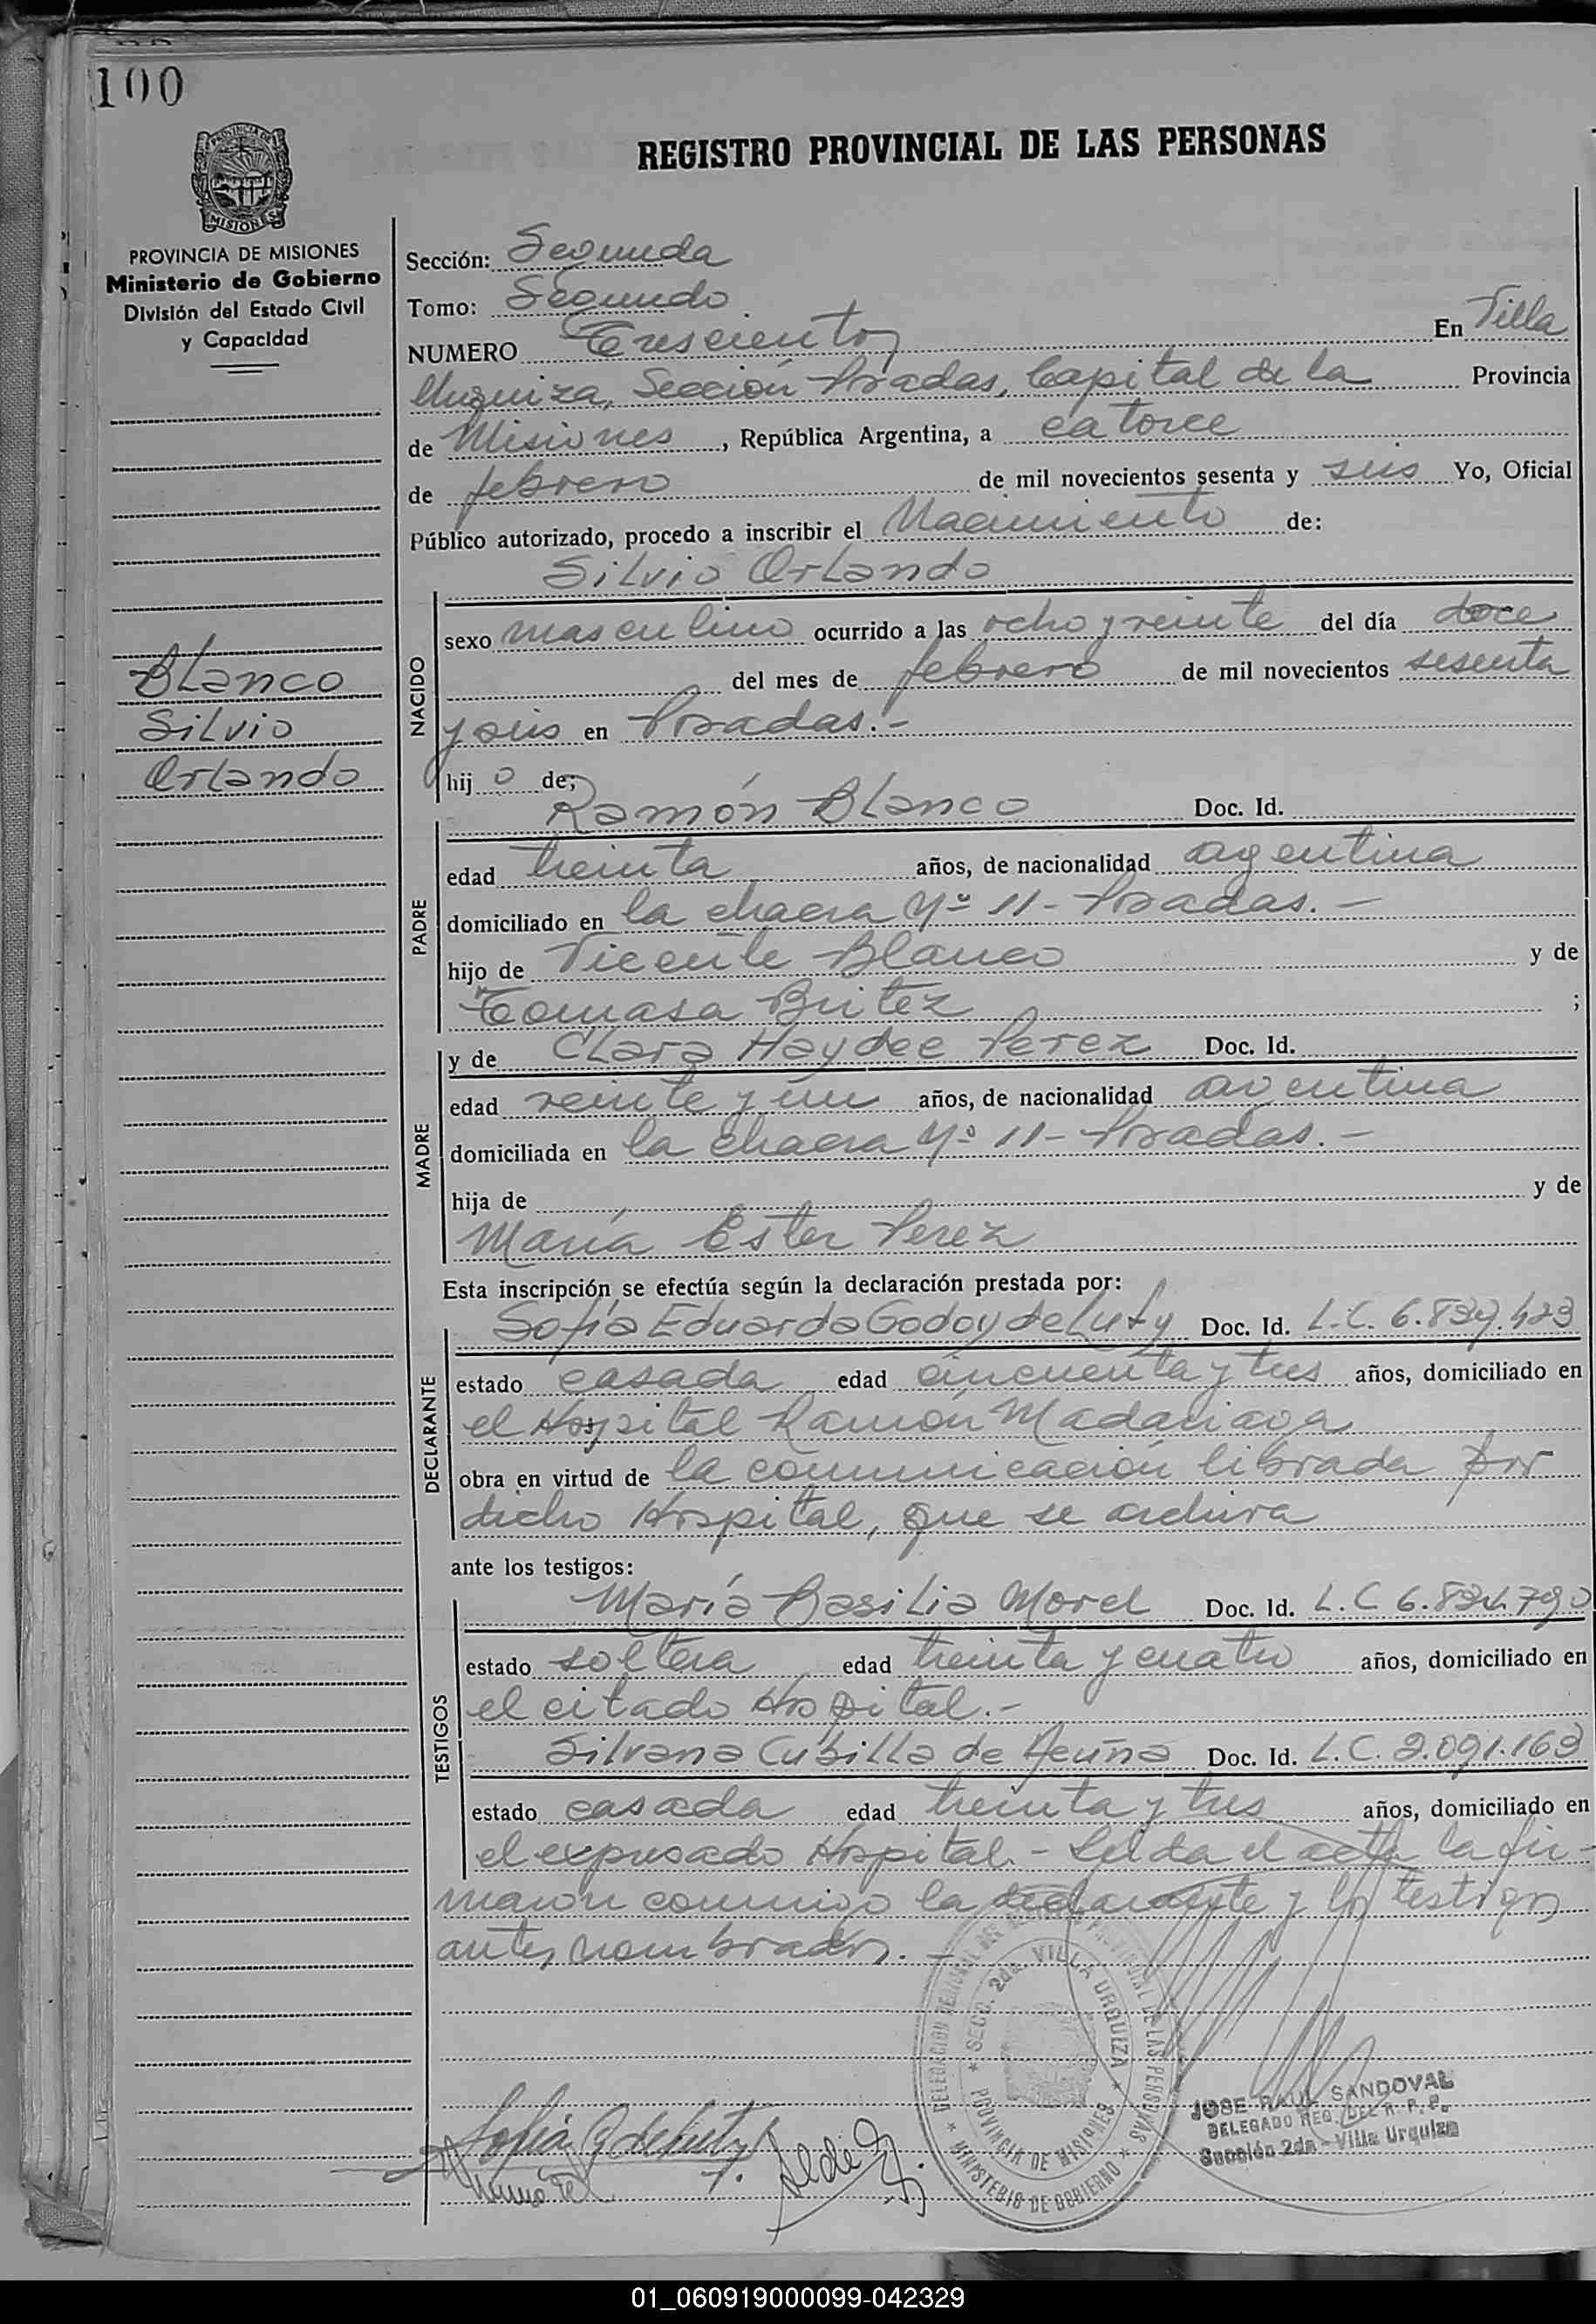 100
REGISTRO PROVINCIAL DE LAS PERSONAS
PROVINCIA DE
MISIONES
PROVINCIA DE MISIONES
Ministerio de Gobierno
División del Estado Civil
y Capacidad
Blanco
Silvio
Orlando
Sección: Segunda
Tomo: Segundo
NUMERO Trescientos En Villa
Urquiza, Sección Posadas, Capital de la Provincia
de Misiones, República Argentina, a catorce
de febrero de mil novecientos sesenta y seis Yo, Oficial
Público autorizado, procedo a inscribir el Nacimiento de:
Silvio Orlando
NACIDO
sexo masculino ocurrido a las ocho y veinte del día doce
del mes de febrero de mil novecientos sesenta
y seis en Posadas.-
hijo de:
Ramón Blanco Doc. Id.
PADRE
edad treinta años, de nacionalidad agentina
domiciliado en la chacra Nº 11 - Posadas. -
hijo de Vicente Blanco y de
Tomasa Britez ;
y de Clara Haydee Perez Doc. Id.
MADRE
edad veinte y un años, de nacionalidad argentina
domiciliada en la chacra Nº 11 - Posadas. -
hija de y de
María Ester Perez
Esta inscripción se efectúa según la declaración prestada por:
Sofía Eduarda Godoy de Luty Doc. Id. L.C. 6.839.423
DECLARANTE
estado casada edad cincuenta y tres años, domiciliado en
el Hospital Ramón Madariaga
obra en virtud de la comunicación librada por
dicho Hospital, que se archiva
ante los testigos:
María Basilia Morel Doc. Id. L.C 6.8 790
TESTIGOS
estado soltera edad treinta y cuatro años, domiciliado en
el citado Hospital.-
Silvana Cubilla de Acuña Doc. Id. L.C. 2.091.163
estado casada edad treinta y tres años, domiciliado en
el expresado Hospital. - Leída el acta la fir-
maron conmigo la declarante y los testigos
antes nombrados. -
DELEGACION REGIONAL DEL REGISTRO PROVINCIAL DE LAS PERSONAS
SECC. 2da. VILLA URQUIZA
PROVINCIA DE MISIONES
MINISTERIO DE GOBIERNO
JOSE RAUL SANDOVAL
DELEGADO REG. DEL R. P. P.
Sección 2da - Villa Urquiza
Sofia G de Luty
01_060919000099-042329